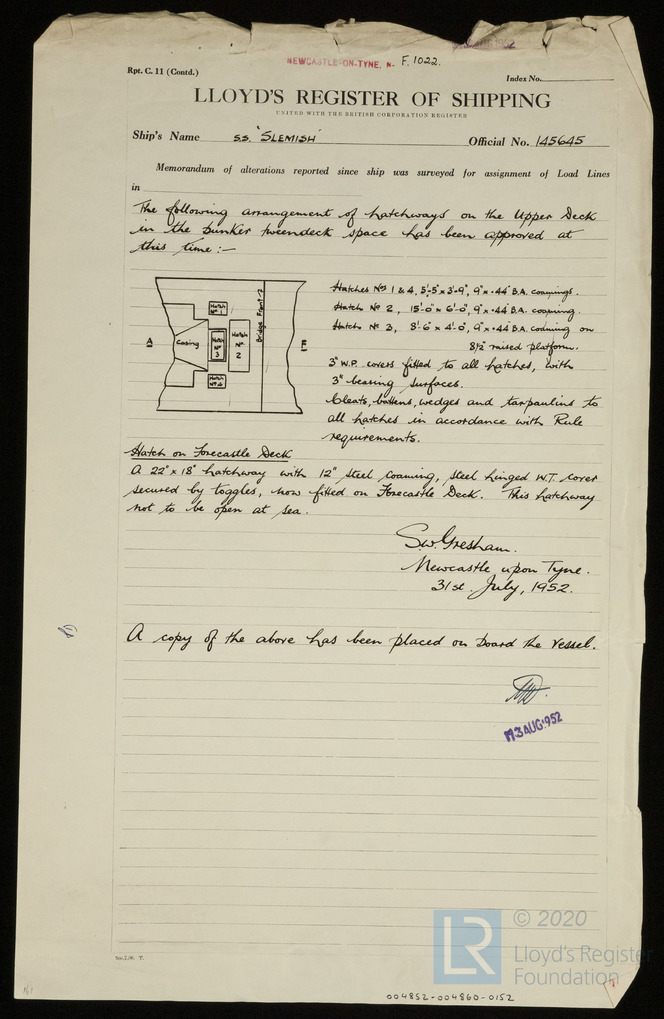 NEWCASTLE-ON-TYNE, N- F. 1022.
Rpt. C. 11 (Contd.)
Index No.
LLOYD'S REGISTER OF SHIPPING
UNITED WITH THE BRITISH CORPORATION REGISTER
Ship's Name S.S. 'SLEMISH' Official No. 145645
Memorandum of alterations reported since ship was surveyed for assignment of Load Lines
in
The following arrangement of hatchways on the Upper Deck
in the bunker tweendeck space has been approved at
this time :—
A
Casing
Hatch Nº 1
Hatch Nº 3
Hatch Nº 2
Hatch Nº 4
Bridge Front
F
Hatches Nos 1 & 4, 5'-5" x 3'-9", 9" x .44" B.A. coamings.
Hatch Nº 2, 15'-0" x 6'-0", 9" x .44" B.A. coaming.
Hatch Nº 3, 8'-6" x 4'-0", 9" x .44" B.A. coaming on
8½" raised platform.
3" W.P. covers fitted to all hatches, with
3" bearing surfaces.
Cleats, battens, wedges and tarpaulins to
all hatches in accordance with Rule
requirements.
Hatch on Forecastle Deck
A 22" x 18" hatchway with 12" steel coaming, steel hinged W.T. cover
secured by toggles, now fitted on Forecastle Deck. This hatchway
not to be open at sea.
S.W. Gresham.
Newcastle upon Tyne.
31st. July, 1952.
A copy of the above has been placed on board the vessel.
3 AUG 1952
© 2020
LR
Lloyd's Register
Foundation
004852-004860-0152